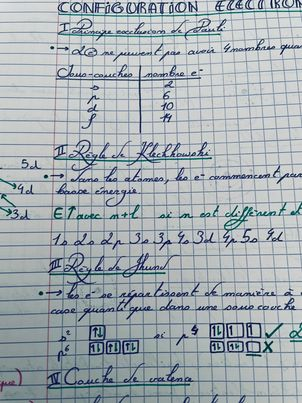 CONFIGURATION ELECTRON
I Principe exclusion de Pauli
→ 2 e⊖ ne peuvent pas avoir 4 nombres quan
Sous-couches nombre e-
s 2
p 6
d 10
f 14
II Règle de Klechkowski
→ dans les atomes, les e- commencent par
basse énergie
5d
4d
3d
E↑ avec n+l si n est différent d
1s 2s 2p 3s 3p 4s 3d 4p 5s 4d
III Règle de Hund
→ les e- se répartissent de manière à
case quantique dans une sous couche
s² ↑↓ si p⁴ ↑↓ 1 1 ✓
p⁶ ↑↓ ↑↓ ↑↓ ↑↓ ↑↓ ✗
que)
IV Couche de valence